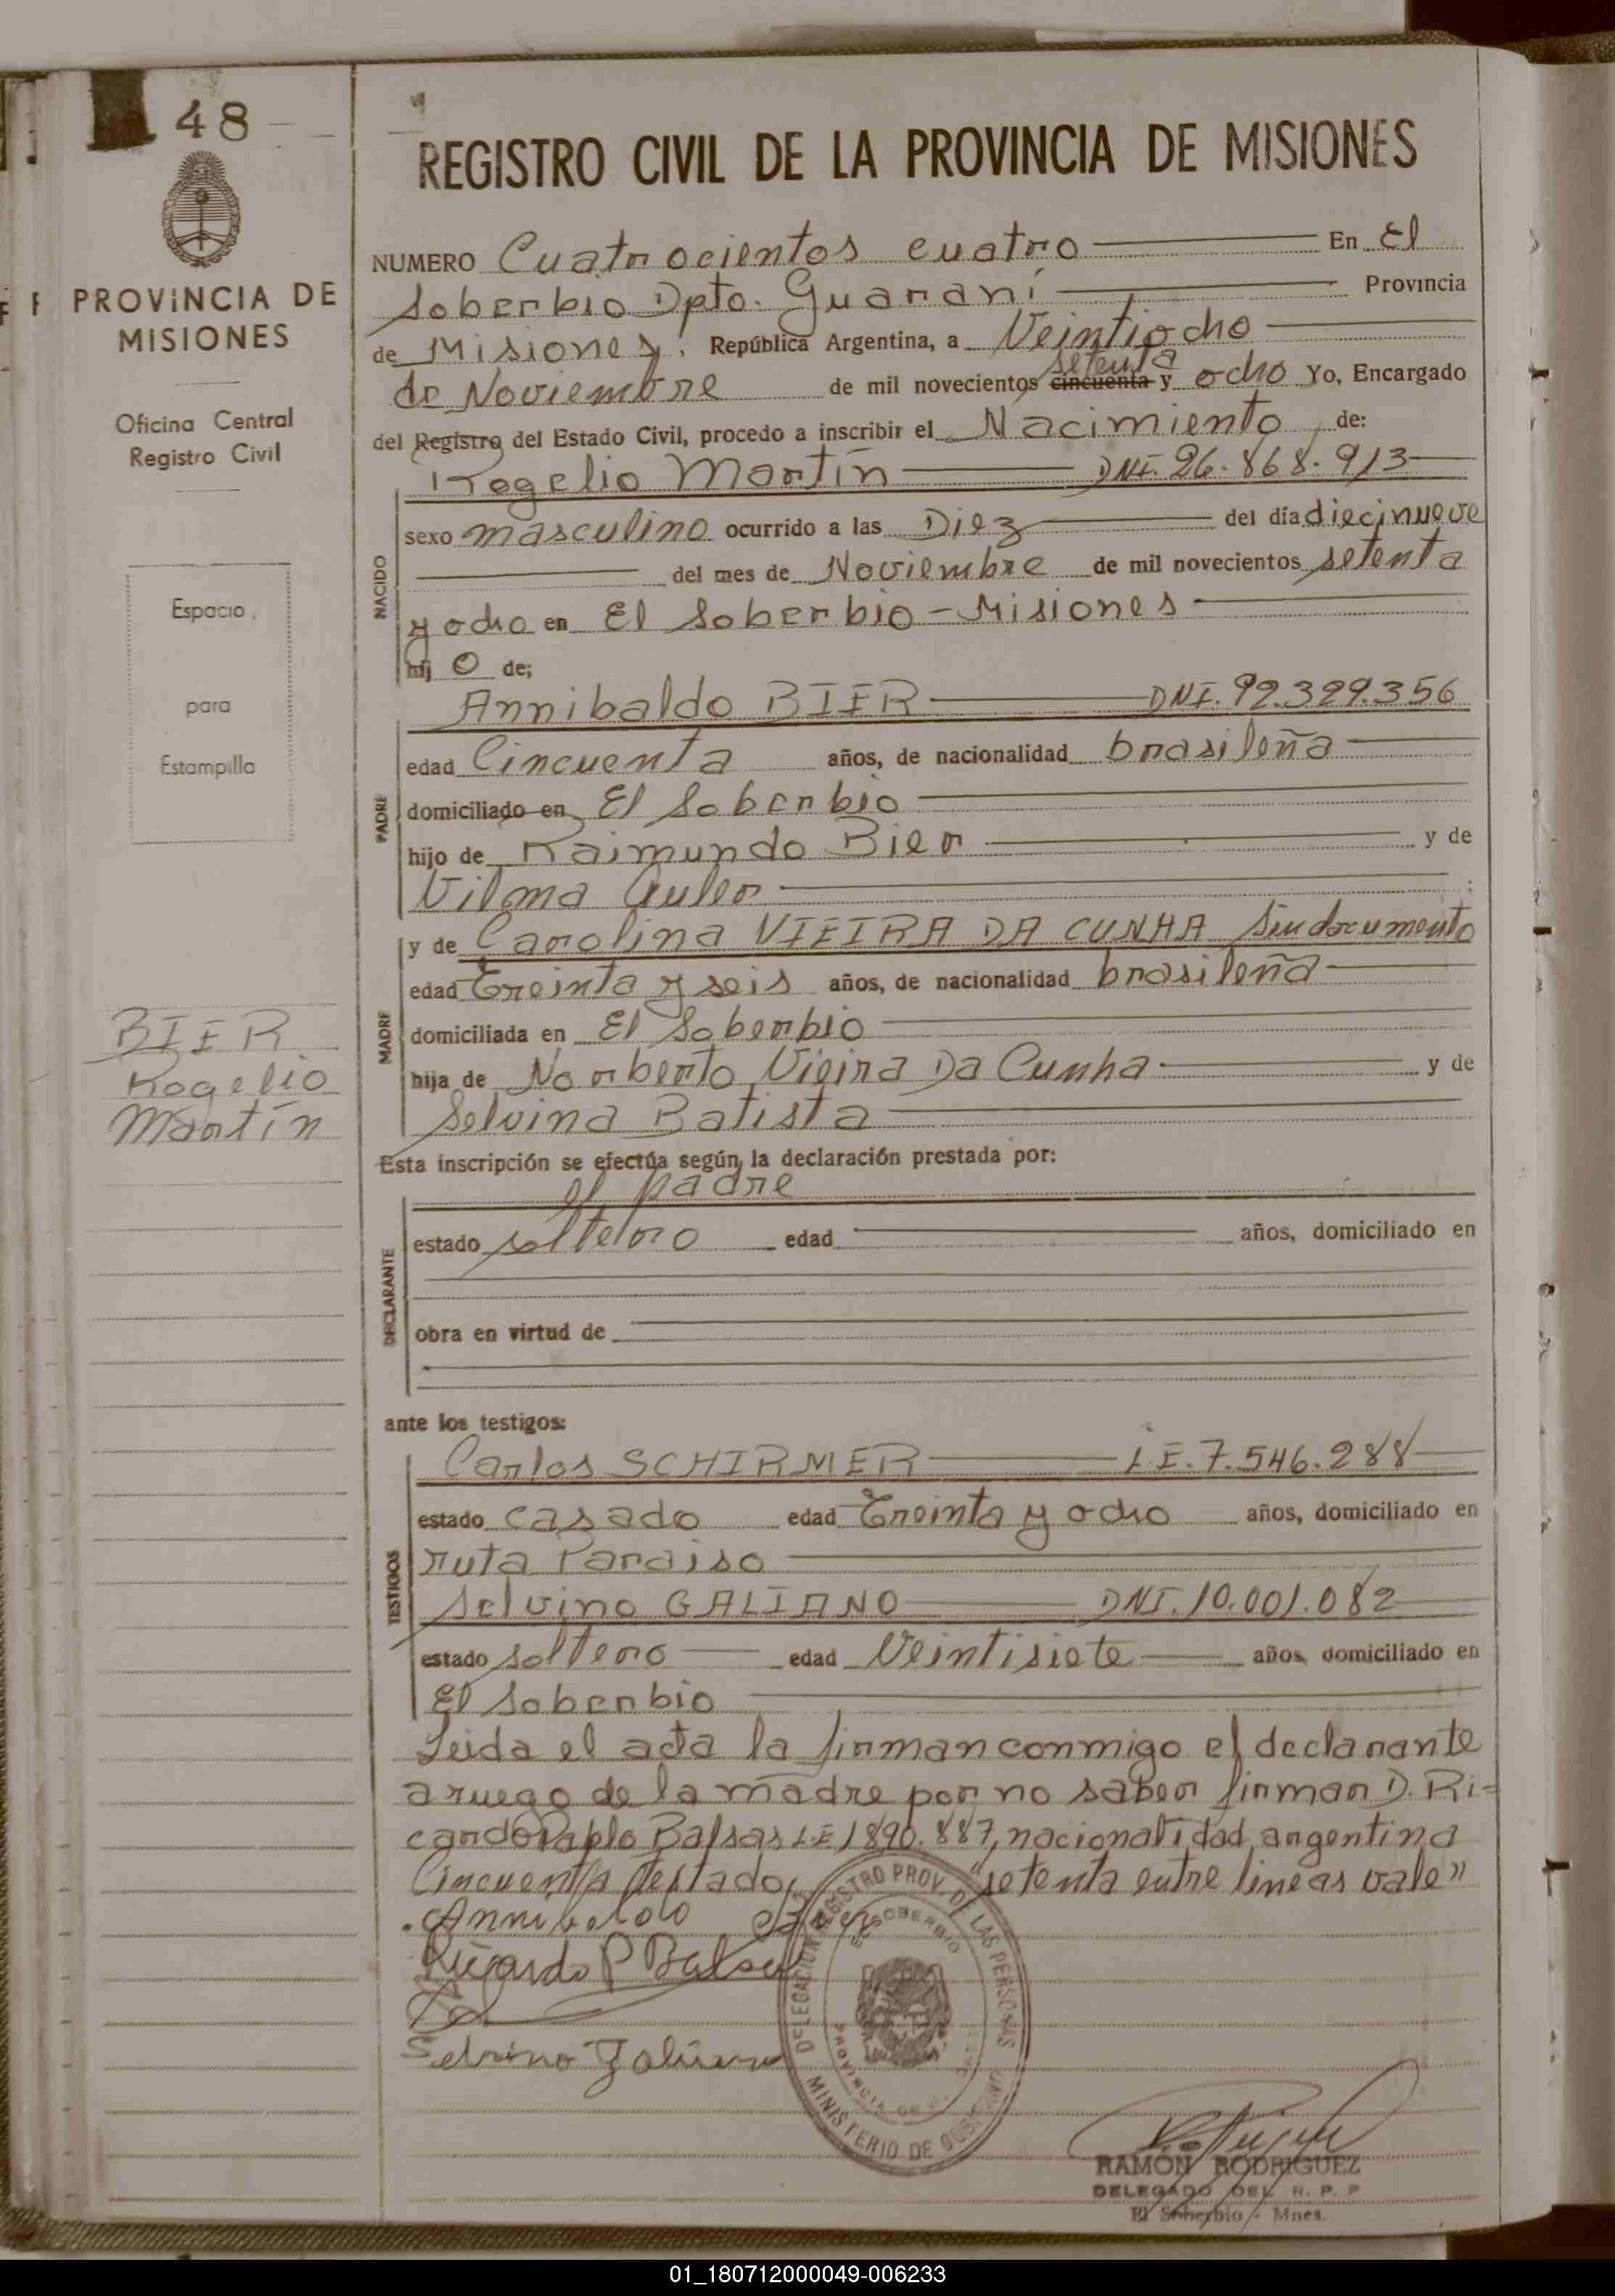 48
PROVINCIA DE
MISIONES
Oficina Central
Registro Civil
Espacio
para
Estampilla
BIER
Rogelio
Martín
REGISTRO CIVIL DE LA PROVINCIA DE MISIONES
NUMERO Cuatrocientos cuatro En El
Soberbio Dpto. Guaraní Provincia
de Misiones, República Argentina, a Veintiocho
setenta
de Noviembre de mil novecientos cincuenta y ocho Yo, Encargado
del Registro del Estado Civil, procedo a inscribir el Nacimiento de:
Rogelio Martín DNI. 26.868.913
NACIDO
sexo masculino ocurrido a las Diez del día diecinueve
del mes de Noviembre de mil novecientos setenta
y ocho en El Soberbio - Misiones
hij o de;
Annibaldo BIER DNI. 92.329.356
PADRE
edad Cincuenta años, de nacionalidad brasileña
domiciliado en El Soberbio
hijo de Raimundo Bier y de
Vilma Auler
MADRE
y de Carolina VIEIRA DA CUNHA Sin documento
edad Treinta y seis años, de nacionalidad brasileña
domiciliada en El Soberbio
hija de Norberto Vieira Da Cunha y de
Selvina Batista
Esta inscripción se efectúa según la declaración prestada por:
el padre
DECLARANTE
estado soltero edad años, domiciliado en
obra en virtud de
ante los testigos:
TESTIGOS
Carlos SCHIRMER L.E. 7.546.288
estado casado edad Treinta y ocho años, domiciliado en
ruta Paraiso
Selvino GALIANO DNI. 10.001.082
estado soltero edad Veintisiete años, domiciliado en
El Soberbio
Leida el acta la firman conmigo el declarante
a ruego de la madre por no saber firmar D. Ri-
cardo Pablo Balsas L.E 1890.887, nacionalidad argentina
Cincuenta testado, "setenta entre lineas vale"
Annibaldo Bier
Ricardo P Balsa
Selvino Galiano
DELEGACION REGISTRO PROV. DE LAS PERSONAS
EL SOBERBIO
PROVINCIA DE
MINISTERIO DE GOBIERNO
RAMÓN RODRIGUEZ
DELEGADO DEL R. P. P
El Soberbio - Mnes.
01_180712000049-006233